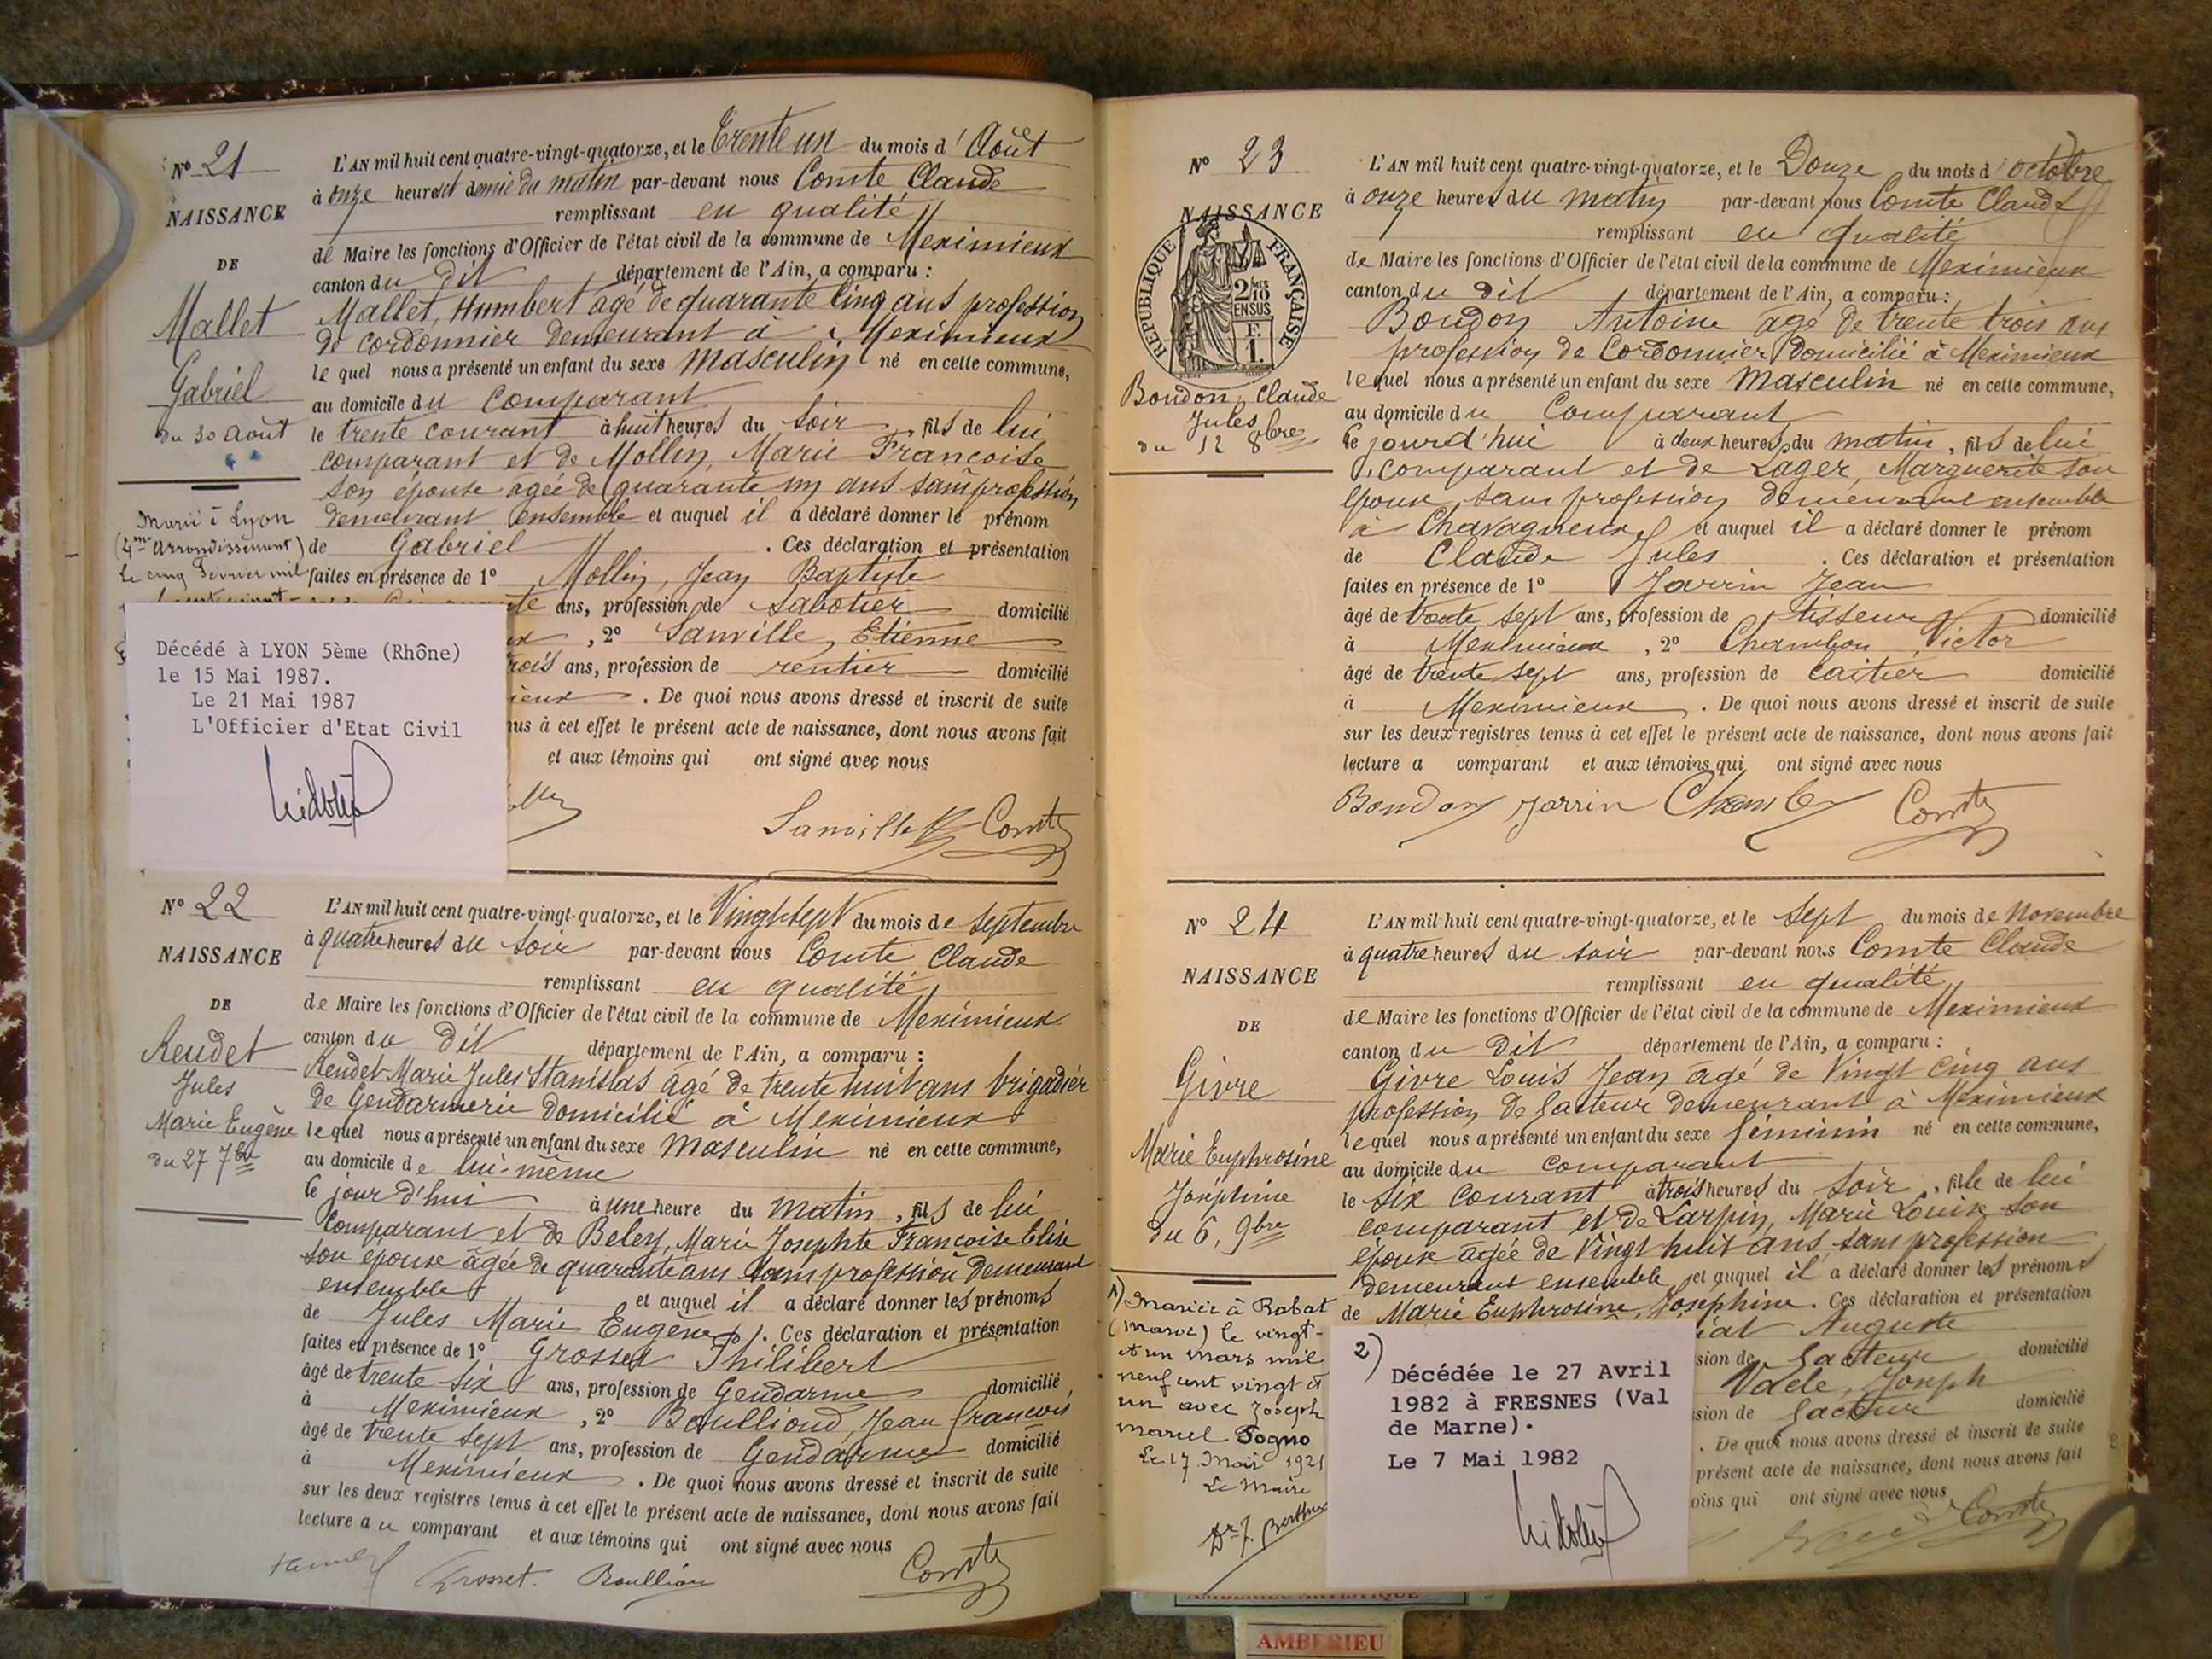 N° 21
NAISSANCE
DE
Mallet
Gabriel
du 30 août
Marié à Lyon
(4me arrondissement)
le cinq Février mil
L'AN mil huit cent quatre-vingt-quatorze, et le Trente un du mois d'Août
à onze heures et demie du matin par-devant nous Comte Claude
remplissant en qualité
de Maire les fonctions d'Officier de l'état civil de la commune de Meximieux
canton du dit département de l'Ain, a comparu :
Mallet, Humbert âgé de quarante cinq ans profession
de cordonnier demeurant à Meximieux
lequel nous a présenté un enfant du sexe masculin né en cette commune,
au domicile du comparant
le trente courant à huit heures du soir, fils de lui
comparant et de Mollin, Marie Françoise
son épouse agée de quarante un ans sans profession
demeurant ensemble et auquel il a déclaré donner le prénom
de Gabriel. Ces déclaration et présentation
faites en présence de 1° Mollin, Jean Baptiste
ans, profession de Sabotier domicilié
, 2° Sanville, Etienne
rois ans, profession de rentier domicilié
ieux. De quoi nous avons dressé et inscrit de suite
nus à cet effet le présent acte de naissance, dont nous avons fait
et aux témoins qui ont signé avec nous
Sanville Comte
Décédé à LYON 5ème (Rhône)
le 15 Mai 1987.
Le 21 Mai 1987
L'Officier d'Etat Civil
N° 22
NAISSANCE
DE
Rendet
Jules
Marie Eugène
du 27 7bre
L'AN mil huit cent quatre-vingt-quatorze, et le Vingt sept du mois de septembre
à quatre heures du soir par-devant nous Comte Claude
remplissant en qualité
de Maire les fonctions d'Officier de l'état civil de la commune de Meximieux
canton du dit département de l'Ain, a comparu :
Rendet Marie Jules Stanislas âgé de trente huit ans brigadier
de Gendarmerie domicilié à Meximieux
lequel nous a présenté un enfant du sexe masculin né en cette commune,
au domicile de lui-même
ce jour d'hui à une heure du matin, fils de lui
comparant et de Beley, Marie Josephte Françoise Elise
son épouse âgée de quarante ans sans profession demeurant
ensemble et auquel il a déclaré donner les prénoms
de Jules Marie Eugène. Ces déclaration et présentation
faites en présence de 1° Grosset Philibert
âgé de trente six ans, profession de Gendarme domicilié
à Meximieux, 2° Boullioud, Jean François
âgé de trente sept ans, profession de Gendarme domicilié
à Meximieux. De quoi nous avons dressé et inscrit de suite
sur les deux registres tenus à cet effet le présent acte de naissance, dont nous avons fait
lecture au comparant et aux témoins qui ont signé avec nous
Grosset. Comte
N° 23
NAISSANCE
RÉPUBLIQUE FRANÇAISE
2/10
EN SUS
Boudon, Claude
Jules
du 12 8bre
L'AN mil huit cent quatre-vingt-quatorze, et le Douze du mois d'octobre
à onze heures du matin par-devant nous Comte Claude
remplissant en qualité
de Maire les fonctions d'Officier de l'état civil de la commune de Meximieux
canton du dit département de l'Ain, a comparu :
Boudon Antoine agé de trente trois ans
profession de Cordonnier domicilié à Meximieux
lequel nous a présenté un enfant du sexe Masculin né en cette commune,
au domicile du Comparant
ce jourd'hui à deux heures du matin, fils de lui
comparant et de Lager, Marguerite son
épouse, sans profession demeurant ensemble
à Chavagneux et auquel il a déclaré donner le prénom
de Claude Jules. Ces déclaration et présentation
faites en présence de 1° Jarrin Jean
âgé de trente sept ans, profession de tisseur domicilié
à Meximieux, 2° Chambon Victor
âgé de trente sept ans, profession de laitier domicilié
à Meximieux. De quoi nous avons dressé et inscrit de suite
sur les deux registres tenus à cet effet le présent acte de naissance, dont nous avons fait
lecture a comparant et aux témoins qui ont signé avec nous
Boudon Jarrin Comte
N° 24
NAISSANCE
DE
Givre
Marie Euphrosine
Joséphine
du 6, 9bre
1) Mariée à Rabat
(Maroc) le vingt-
et un mars mil
neuf cent vingt et
un avec Joseph
Marcel Fogno
Le 17 Mai 1921
Le Maire
L'AN mil huit cent quatre-vingt-quatorze, et le Sept du mois de Novembre
à quatre heures du soir par-devant nous Comte Claude
remplissant en qualité
de Maire les fonctions d'Officier de l'état civil de la commune de Meximieux
canton du Dit département de l'Ain, a comparu :
Givre Louis Jean âgé de Vingt cinq ans
profession de facteur demeurant à Meximieux
lequel nous a présenté un enfant du sexe féminin né en cette commune,
au domicile du comparant
le six courant à trois heures du soir, fille de lui
comparant et de Larpin, Marie Louise son
épouse agée de Vingt huit ans, sans profession
demeurant ensemble et auquel il a déclaré donner les prénoms
de Marie Euphrosine, Josephine. Ces déclaration et présentation
Auguste
sion de facteur domicilié
Joseph
sion de facteur domicilié
. De quoi nous avons dressé et inscrit de suite
présent acte de naissance, dont nous avons fait
oins qui ont signé avec nous
Comte
2)
Décédée le 27 Avril
1982 à FRESNES (Val
de Marne).
Le 7 Mai 1982
AMBERIEU ARTISTIQUE
AMBERIEU